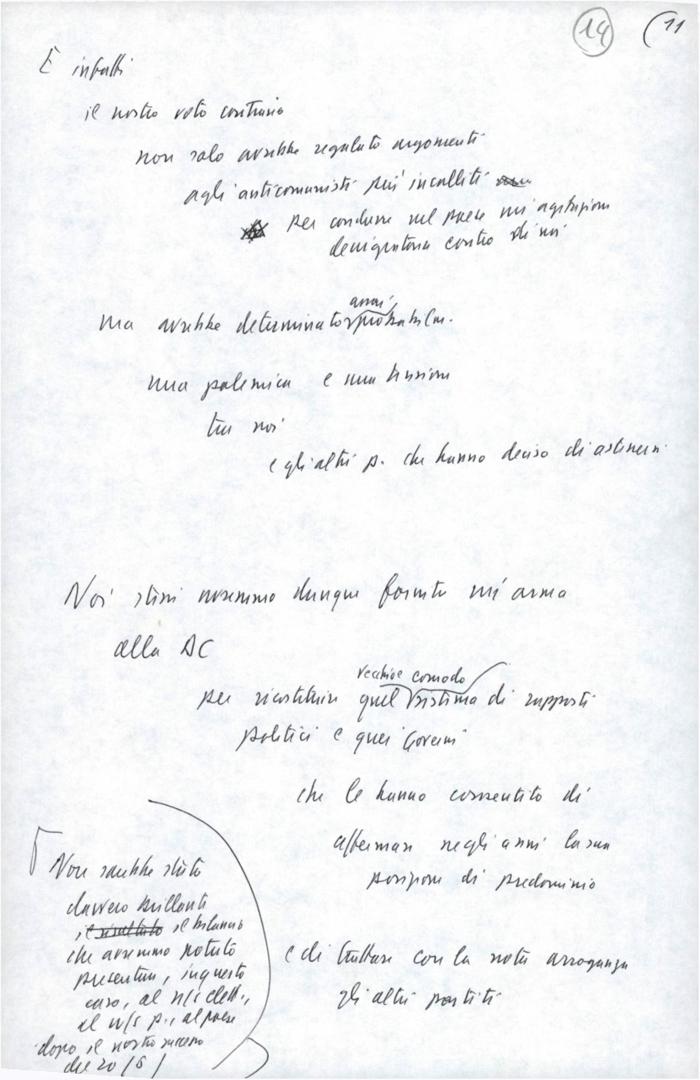 14 (11
E infatti
il nostro voto contrario
non solo avrebbe regalato argomenti
agli anticomunisti più incalliti
per condurre nel paese un'agitazione
denigratoria contro di noi
assai
ma avrebbe determinato probabilm.
una polemica e una tensione
tra noi
e gli altri p. che hanno deciso di astenersi
Noi stessi avremmo dunque fornito un'arma
alla DC
vecchio e comodo
per ricostituire quel sistema di rapporti
politici e quei Governi
che le hanno consentito di
affermare negli anni la sua
posizione di predominio
e di trattare con la nota arroganza
gli altri partiti
Non sarebbe stato
davvero brillante
il risultato il bilancio
che avremmo potuto
presentare, in questo
caso, al n/s elett.,
al n/s p., al paese
dopo il nostro successo
del 20/6/